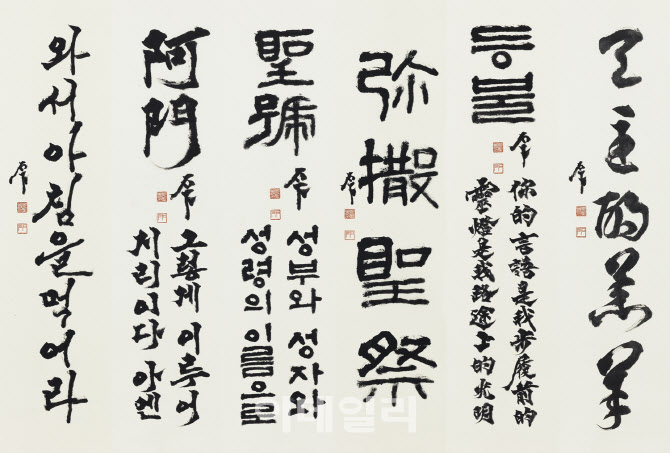 天主的羔羊
등불
你的言語是我步履前的
靈燈是我路途上的光明
弥撒聖祭
聖號
성부와 성자와
성령의 이름으로
阿門
그렇게 이루어
지리이다 아멘
와서 아침을 먹어라
이데일리